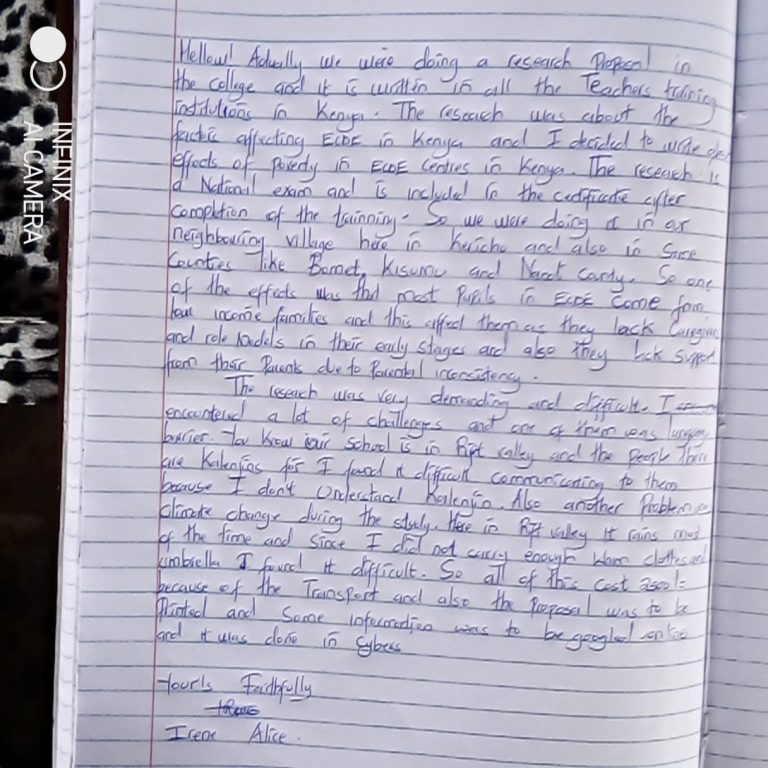 Hellow! Actually we were doing a research Proposal in
the college and it is written in all the Teachers training
institutions in Kenya. The research was about the
factis affecting ECDE in Kenya and I decided to write
effects of Poverty in ECDE Centres in Kenya. The research is
a National exam and is included in the certificate after
completion of the trainning. So we were doing it in our
neighbouring village here in Kericho and also in Some
Counties like Bomet, Kisumu and Narok County. So one
of the effects was that most Pupils in ECDE come from
low income families and this affect them as they lack Caregivers
and role models in their early stages and also they lack support
from their Parents due to Parental inconsistency.
The reseach was very demanding and difficult. I
encountered a lot of challenges and one of them was language
barrier. You know our school is in Rift valley and the people there
are Kalenjins for I found it difficult communicating to them
because I don't Understand Kalenjin. Also another Problem
climate change during the study. Here in Rift valley it rains most
of the time and since I did not carry enough Warm clothes and
umbrella I found it difficult. So all of this cost
because of the Transport and also the Proposal was to be
Printed and Some information was to be googled online
and it was done in Cybers
Yours Faithfully
Irene Alice.
INFINIX
AI CAMERA